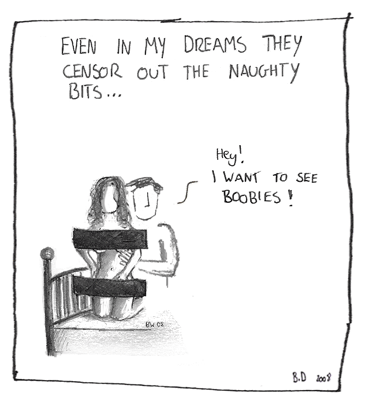 EVEN IN MY DREAMS THEY
CENSOR OUT THE NAUGHTY
BITS...
Hey!
I WANT TO SEE
BOOBIES!
BW 08
B.D 2008